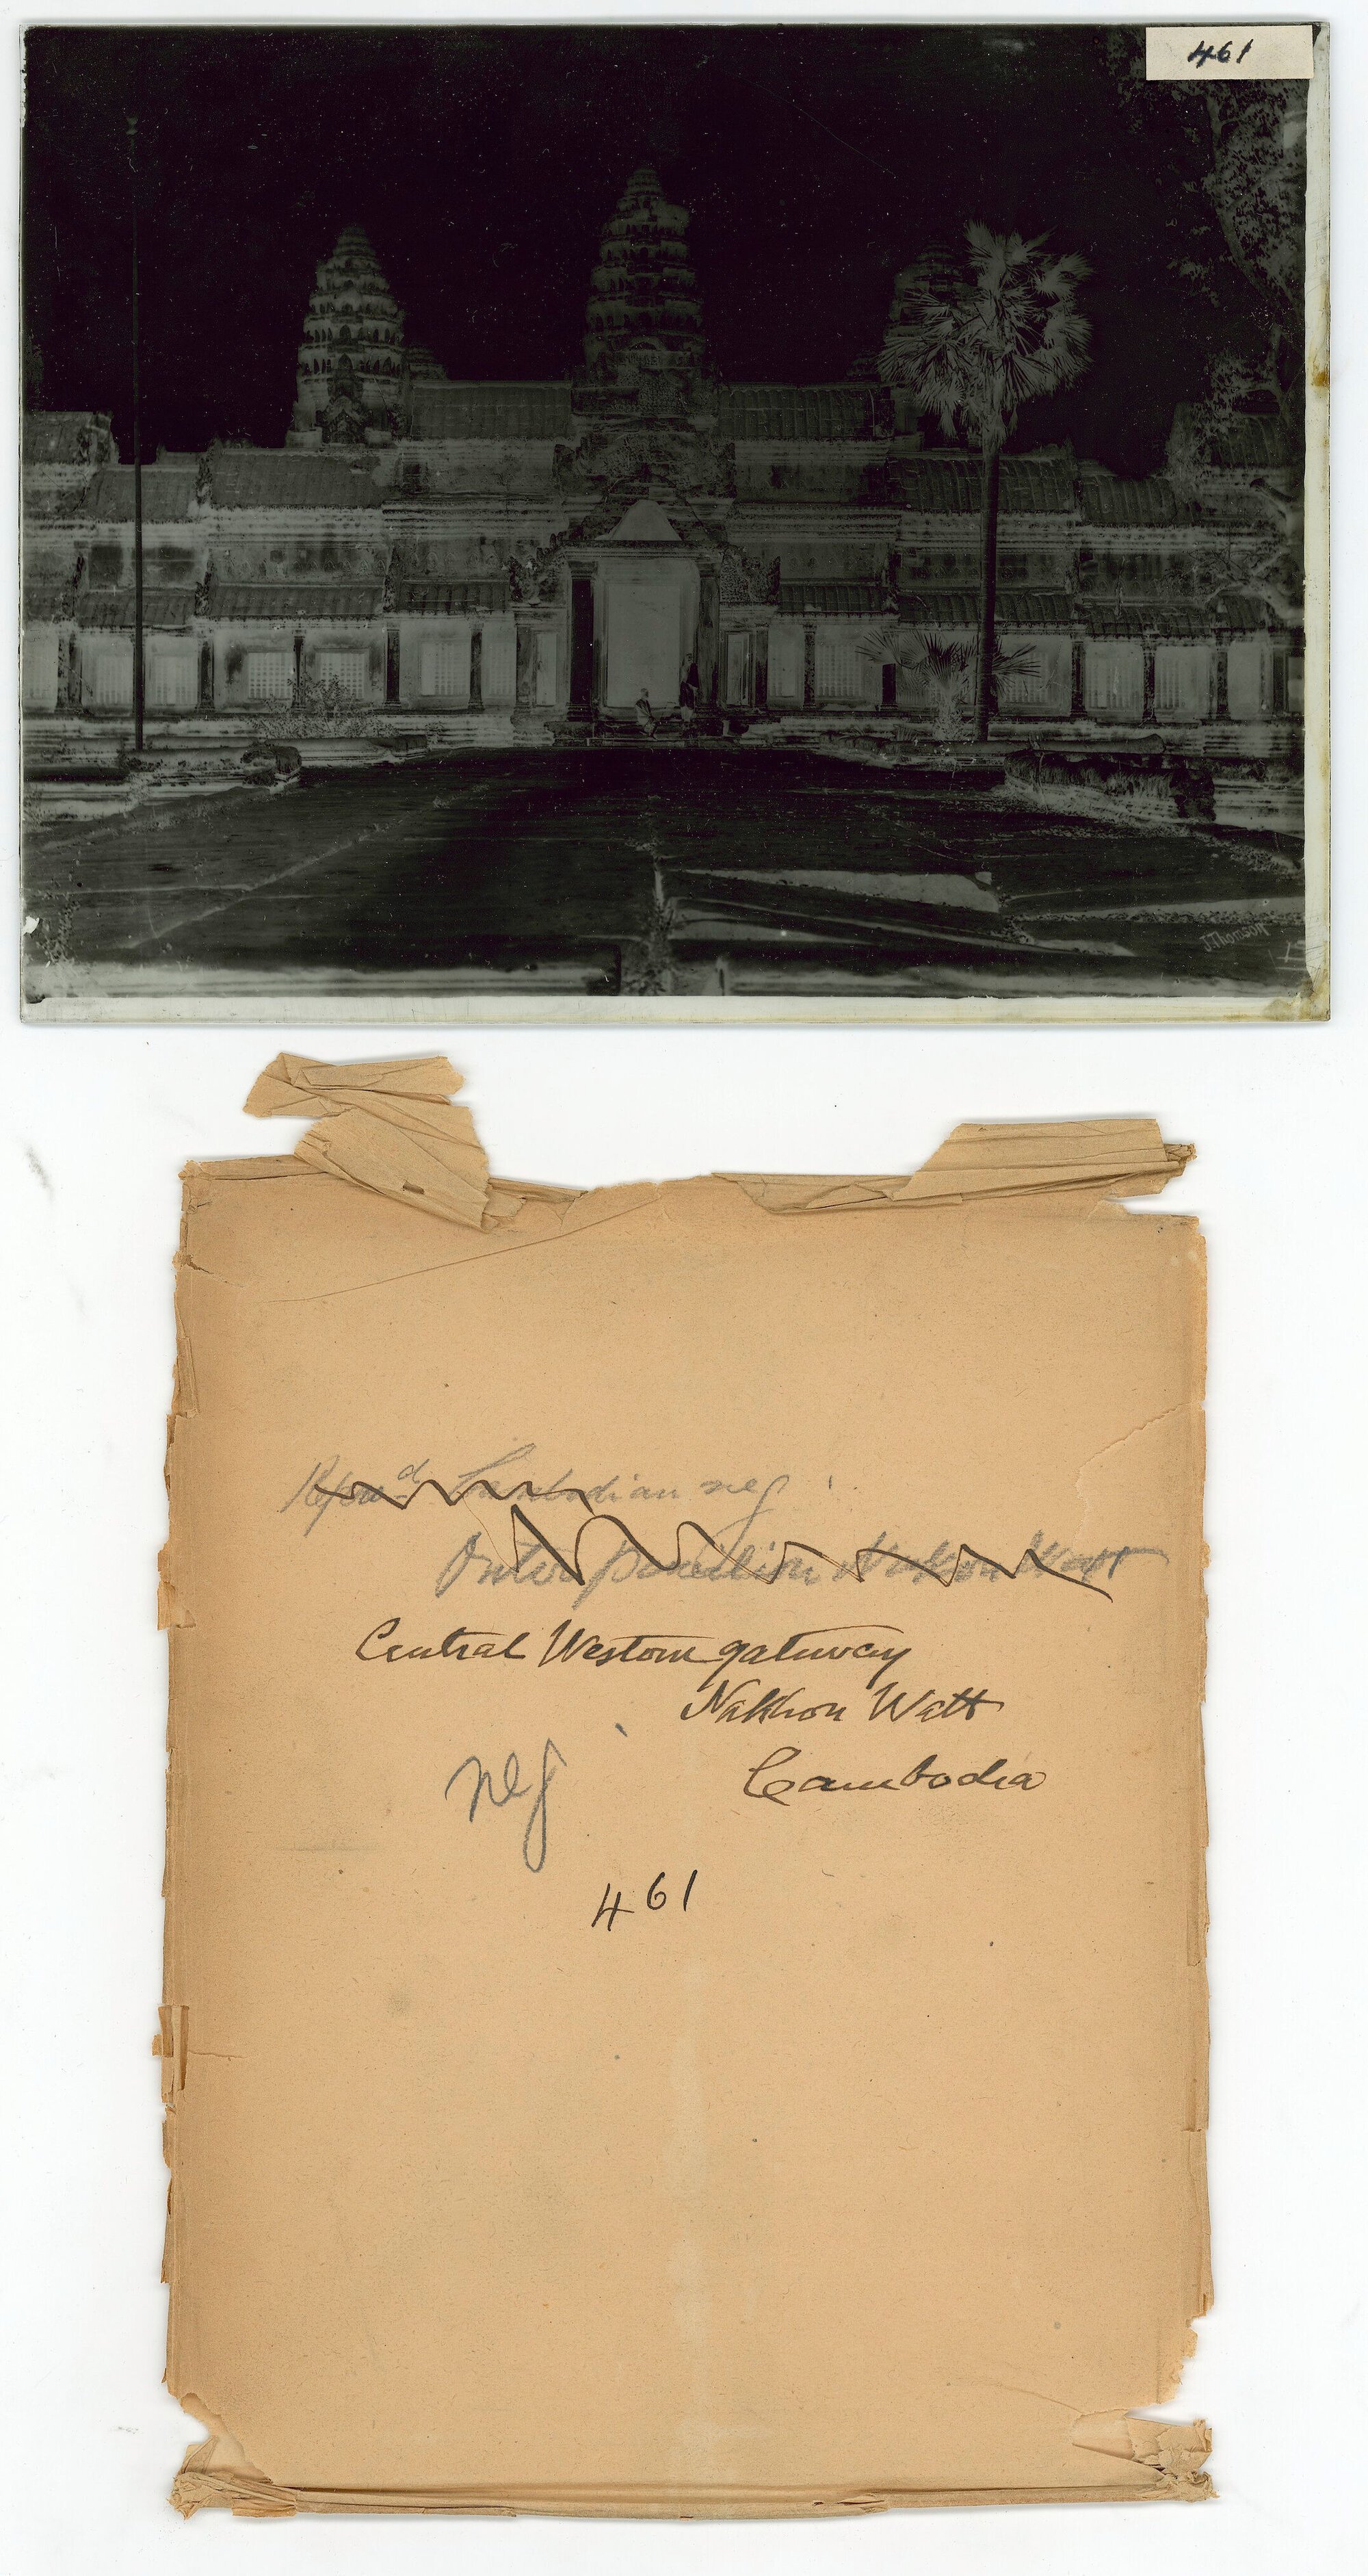 461
J. Thomson
Cambodian neg
Outer pavilion Nakhon Watt
Central Western gateway
Nakhon Watt
Cambodia
neg
461